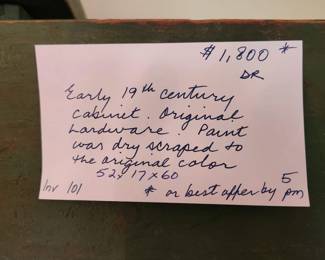 $1,800 *
DR
Early 19th century
cabinet. Original
hardware. Paint
was dry scraped to
the original color
52x17x60
Inv 101
* or best offer by 5 pm